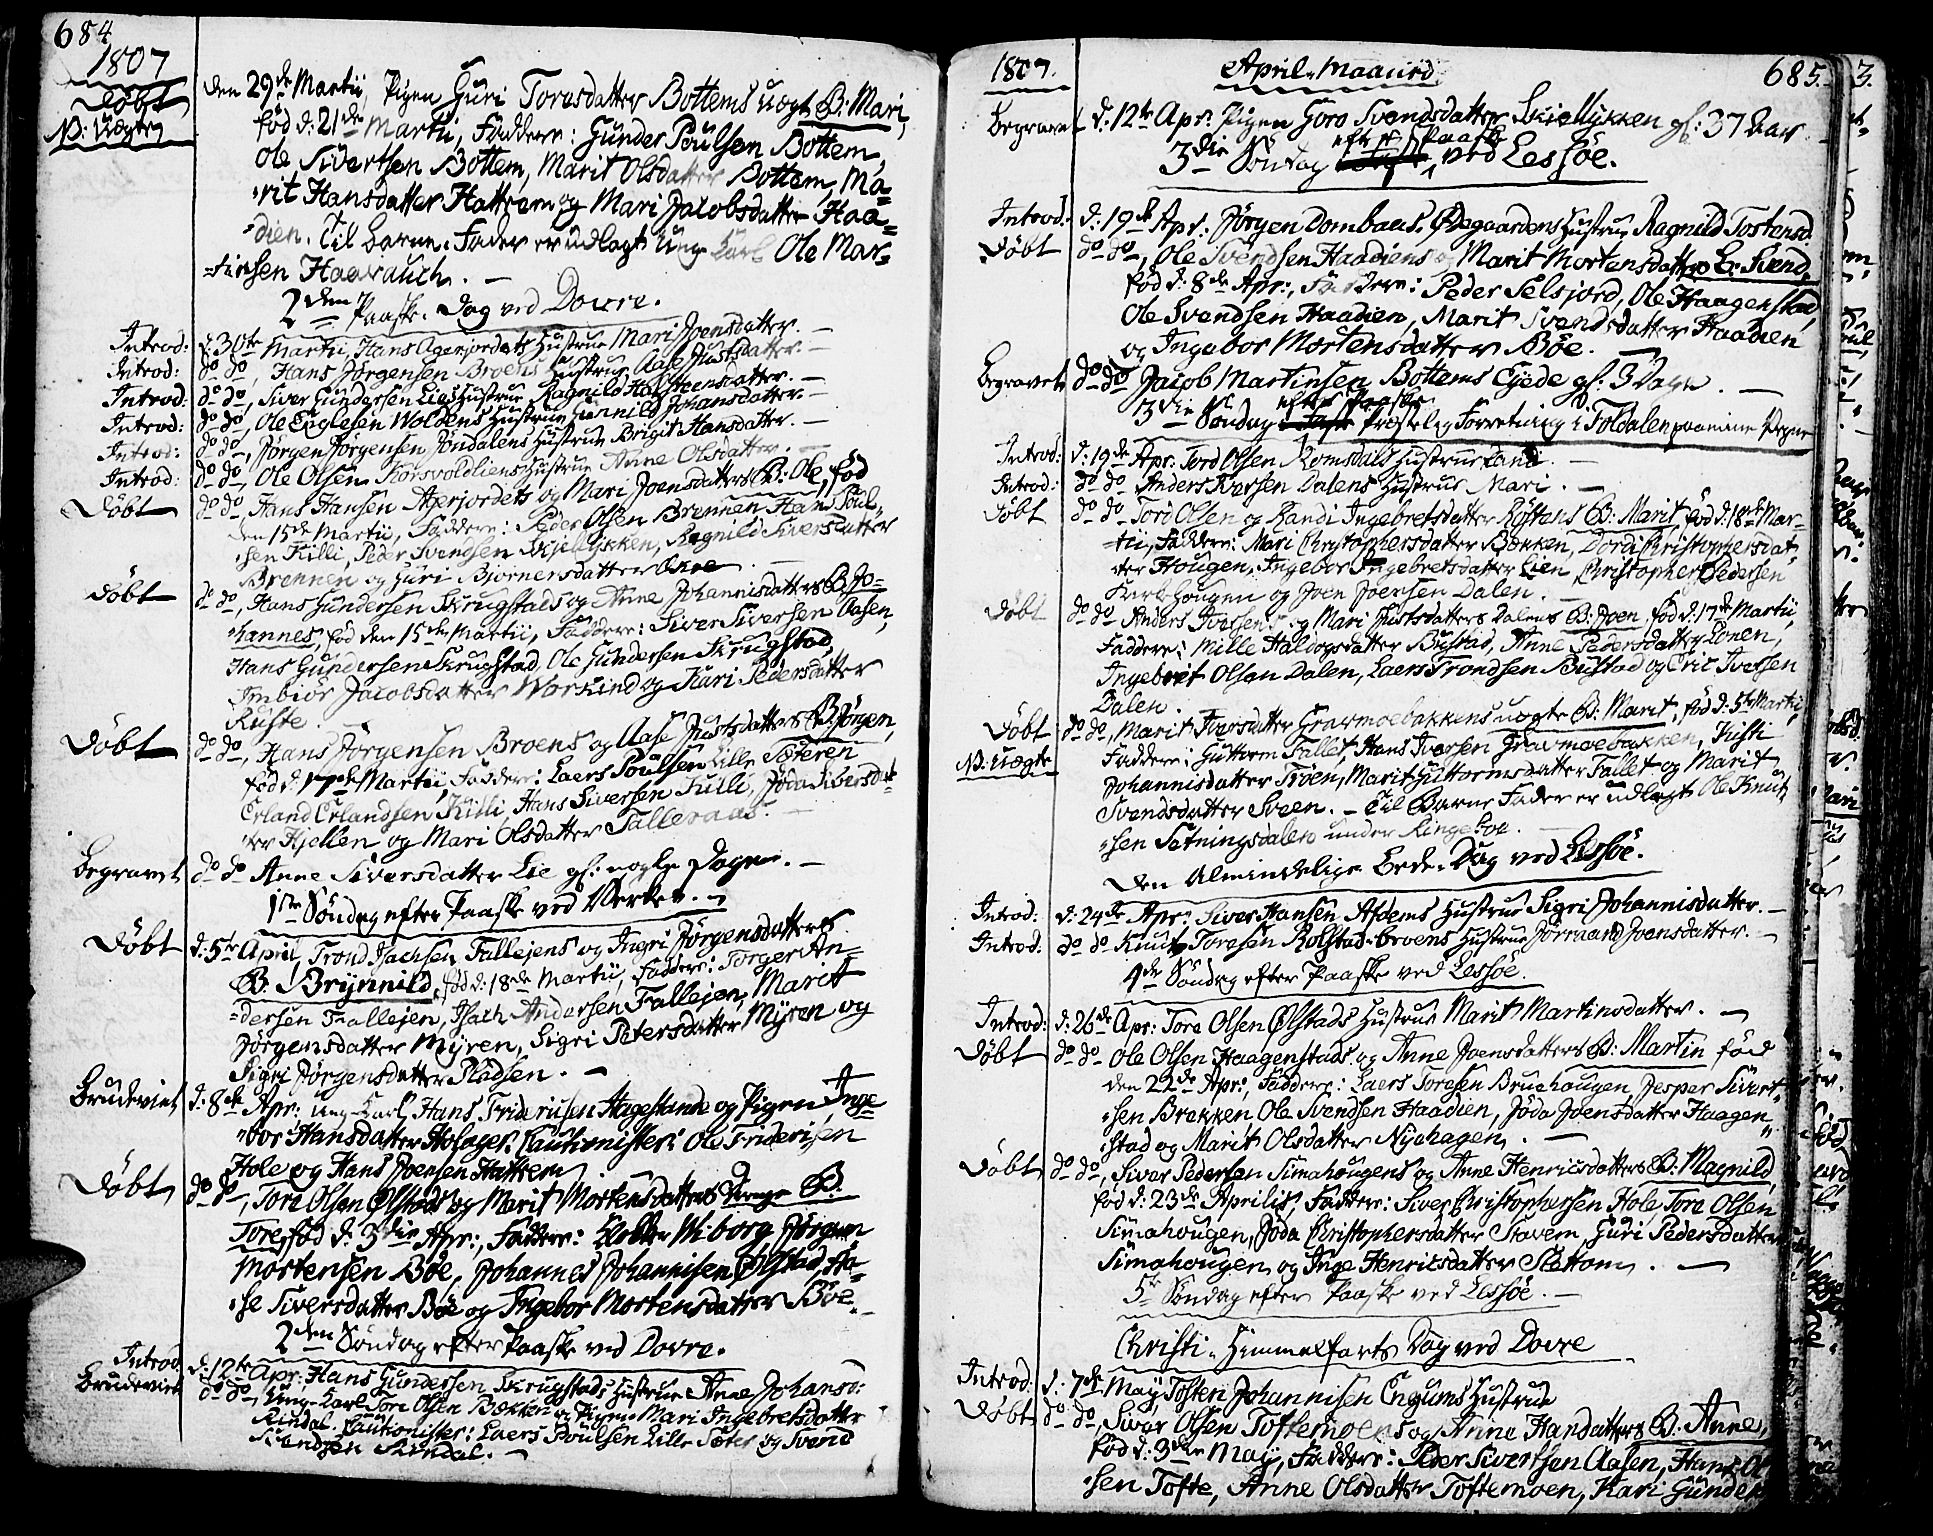 684
1807
Døbt
N: Uægte
den 29de Martii, Pigen Guri Toresdatter Bottems uægt B: Mari,
fød d: 21de Martii, Faddere: Gunder Poulsen Bottem,
Ole Sivertsen Bottem, Marit Olsdatter Bottem, Ma=
rit Hansdatter Hattrem og Mari Jacobsdatter Haa=
dien. Til Barne-Fader er udlagt Ung Karl Ole Mor=
tensen
2den Paaske-Dag ved Dovre.
Introd: d: 30te Martii, Hans Agerjordets Hustrue Mari Joensdatter. —
Introd: do do, Hans Jørgensen Broens Hustrue Aase Justsdatter. —
Introd: do do, Siver Gundersen Lies Hustrue Ragnild Halstensdatter. —
Introd: do do, Ole Englesen Woldens Hustrue Gunild Johansdatter. —
Introd: do do, Jørgen Jørgensen Jøndalens Hustrue Brigit Hansdatter. —
Introd: do do, Ole Olsen Korsvoldliens Hustrue Anne Olsdatter. —
Døbt do do, Hans Hansen Agerjordets og Mari Joensdatters B: Ole, fød
den 15de Martii, Faddere: Peder Olsen Brennen Hans Poul=
sen Killi, Peder Svendsen Skiellykken, Ragnild Siversdatter
Brennen og Guri Bjørnersdatter
Døbt do do, Hans Gundersen Skrugstads og Anne Johannisdatters B: Jo=
hannes, fød den 15de Martii, Faddere: Siver Siversen Aasen,
Hans Gundersen Skrugstad, Ole Gundersen Skrugstad,
Imbiør Jacobsdatter Workind og Kari Pedersdatter
Ruste.
Døbt do do, Hans Jørgensen Broens og Aase Justsdatters B: Jørgen,
fød d: 17de Martii, Faddere: Laers Poulsen Lille Sæteren
Erland Erlandsen Killi, Hans Siversen Killi, Jøda Siversdat=
ter Kjellen og Mari Olsdatter Talleraas. —
Begravet do do Anne Siversdatter Lie gl: nogle Dage. —
1ste Søndag efter Paaske ved Verket. —
Døbt d: 5te April, Trond Isachsen Fallejens og Ingri Jørgensdatters
B: Brynnild, fød d: 18de Martii, Faddere: Torger An=
dersen Fallejen, Isach Andersen Fallejen, Marit
Jørgensdatter Myren, Sigri Petersdatter Myren og
Sigri Jørgensdatter Pladsen. —
Brudeviet d: 8de Apr: ung Karl Hans Friderisen Hagestande og Pigen Inge=
bor Hansdatter Holaget. Cautionister: Ole Friderisen
Hole og Hans Joensen Hattrem
Døbt do do, Tore Olsen Ølstads og Marit Mortensdatters B:
Tore, fød d: 3die Apr:, Faddere: Wiborg Jørgen
Mortensen Bøe, Johannes Johannisen Ølstad, Aa=
se Siversdatter Bøe og Ingebor Mortensdatter Bøe. —
2den Søndag efter Paaske ved Dovre.
Introd. d: 12te Apr: Hans Gundersen Skrugstads Hustrue Anne Johansd:
Brudeviet do do, Ung Karl Tore Olsen Bækken og Pigen Mari Ingebretsdatter
Rindal. Cautionister: Laers Poulsen Lille Sæter og Svend
Svendsen Rindal. —
1807. April-Maaned 685.
Begravet d: 12te Apr: Pigen Goro Svendsdatter Skiellykken gl: 37 Aar
efter Paaske
3die Søndag ved Lessøe.
Introd: d: 19de Apr: Jørgen Dombaas. Ødegaardens Hustrue Ragnild Tostensd.
Døbt do do, Ole Svendsen Haadiens og Marit Mortensdatters B: Svend,
fød d: 8de Apr:, Faddere: Peder Selsjord, Ole Haagenstad,
Ole Svendsen Haadien, Marit Svendsdatter Haadien
og Ingebor Mortensdatter Bøe.
Begravet do do Jacob Martinsen Bottems Gjede gl: 3 Dage. —
efter Paaske
3die Søndag Præstelig Forretning i Foldalen paa mine Vegne
Introd: d: 19de Apr: Tord Olsen Romsdals Hustrue Randi. —
Introd: do do Anders Iversen Dalens Hustrue Mari. —
Døbt do do Tord Olsen og Randi Ingebretsdatter Røstens B: Marit, fød d: 18de Mar=
tii, Faddere: Mari Christophersdatter Bækken, Dordi Christophersdat=
ter Hougen, Ingebor Ingebretsdatter Lien Christopher Pedersen
Kirkhougen og Joen Joensen Dalen. —
Døbt do do Anders Iversens og Mari Justsdatters Dalens B: Joen, fød d: 17de Martii,
Faddere: Mille Haldogsdatter Bustad, Anne Pedersdatter Lonen,
Ingebret Olsen Dalen, Laers Trondsen Bustad og Eric Iversen
Dalen.
Døbt do do, Marit Iversdatter Gravmoebakkens uægte B: Marit, fød d: 5te Martii,
N: uægte Faddere: Guttorm Fallet, Hans Iversen Gravmoebakken, Kisti
Johannisdatter Trøen, Marit Guttormsdatter Fallet og Marit
Svendsdatter Sveen. — Til Barne Fader er udlagt Ole Knut=
sen Sætningsdalen under Ringeboe.
Den Almindelige Bede-Dag ved Lessøe.
Introd: d: 24de Apr: Siver Hansen Afdems Hustrue Sigri Johannisdatter. —
Introd: do do Knut Toresen Rolstad-broens Hustrue Jørrand Joensdatter. —
4de Søndag efter Paaske ved Lessøe.
Introd: d: 26de Apr: Tore Olsen Ølstads Hustrue Marit Martinsdatter. —
Døbt do do Ole Olsen Haagenstads og Anne Joensdatters B: Martin fød
den 22de Apr:, Faddere: Laers Toresen Bruehougen, Jesper Sivert=
sen Brekken Ole Svendsen Haadien, Jøda Joensdatter Haagen=
stad og Marit Olsdatter Nyehagen. —
Døbt do do, Siver Pedersen Simahougens og Anne Henricsdatters B: Magnild,
fød d: 23de Aprilis, Faddere: Siver Christophersen Hole Tore Olsen
Simahougen, Jøda Christophersdatter Stavem, Guri Pedersdatter
Simahougen og Inge Henricsdatter Slettom. —
5te Søndag efter Paaske ved Lessøe. —
Christi-Himmelfarts Dag ved Dovre
Introd: d: 7de May, Tosten Johannisen Engums Hustrue
Døbt do do Sivar Olsen Toftemoens og Anne Hansdatters B: Anne,
fød d: 3die May, Faddere: Peder Sivertsen Aasen, Hans Ol
sen Tofte, Anne Olsdatter Toftemoen, Kari Gunder